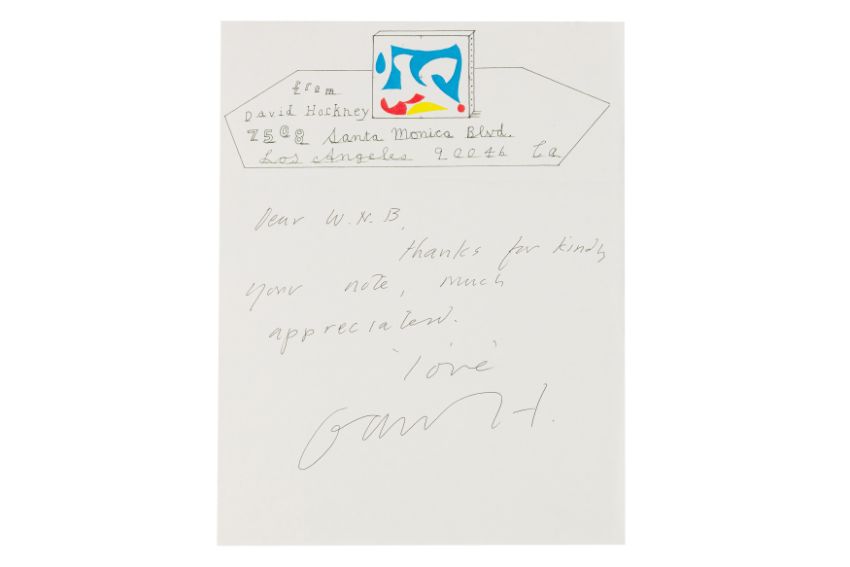 from
David Hockney
7508 Santa Monica Blvd.
Los Angeles 90046 Ca
Dear W.N.B,
thanks for kindly
your note, much
appreciated.
'love'
David H.